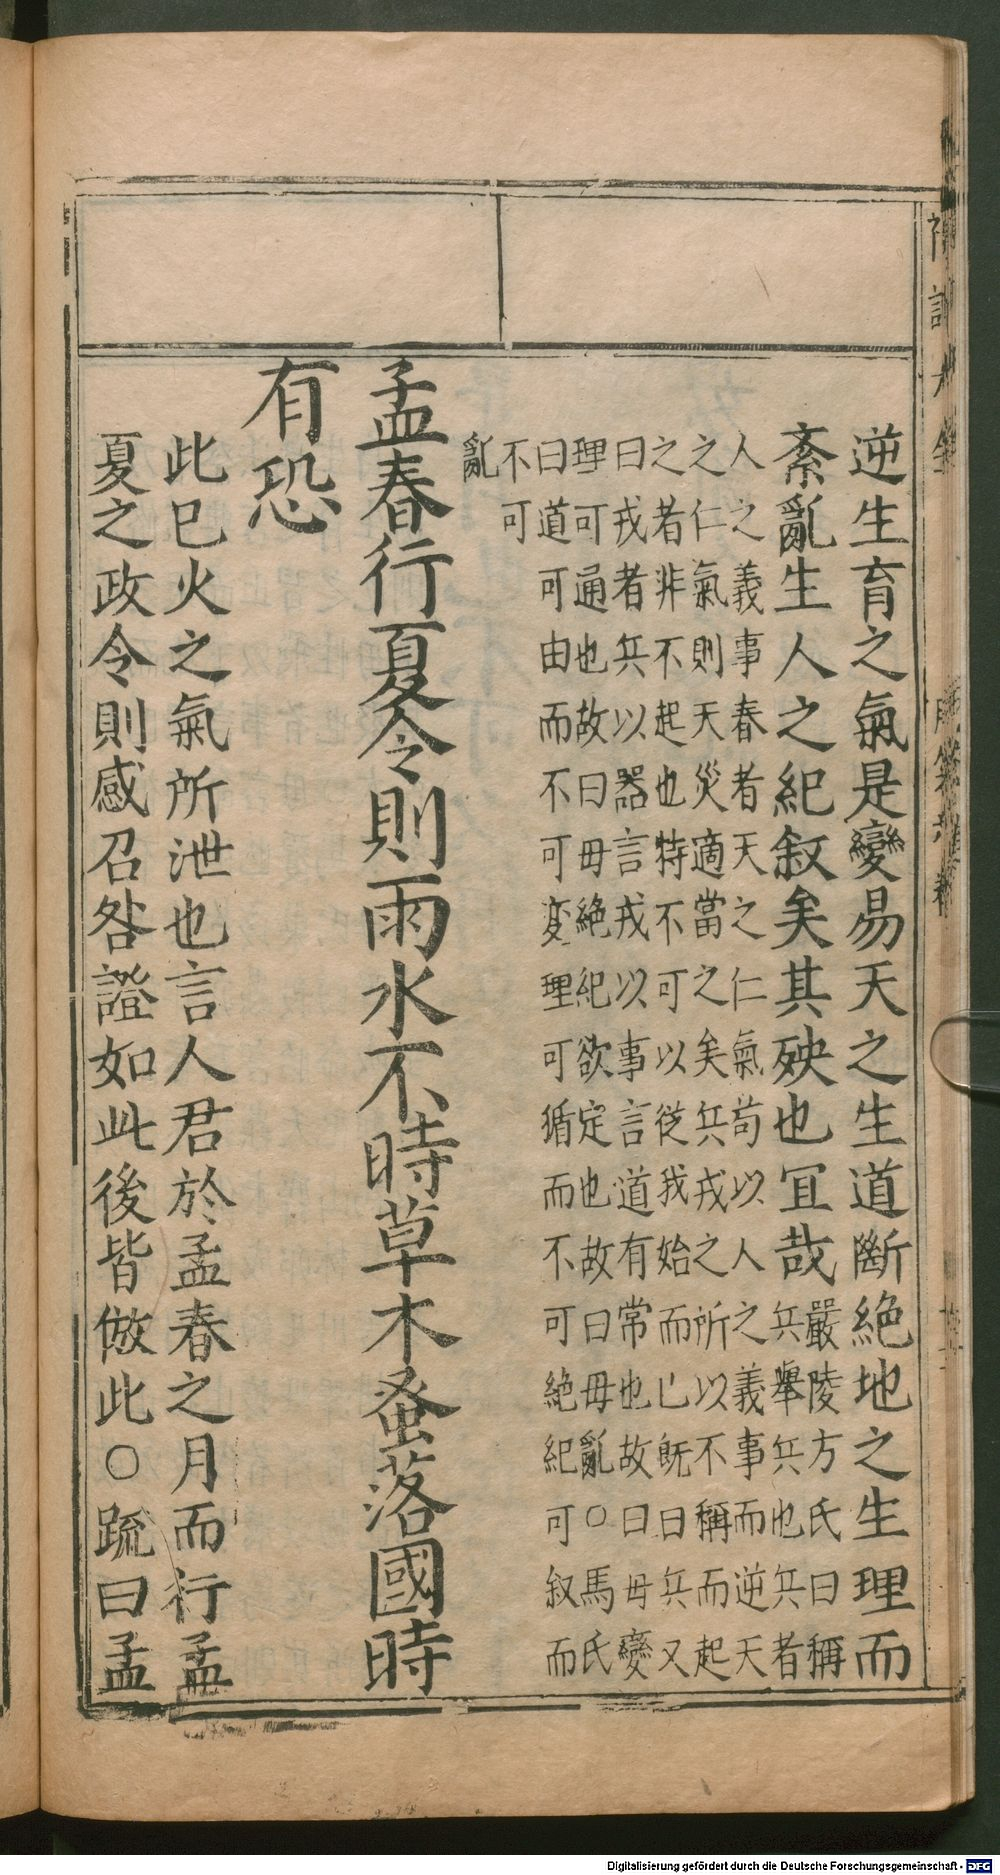 逆生育之氣是變易天之生道斷絕地之生理而
紊亂生人之紀叙矣其殃也冝哉
嚴陵方氏曰稱
兵舉兵也兵者
人之義事春者天之仁氣苟以人之義事而逆天
之仁氣則天災適當之矣兵戎之所以不稱而起
之者非不起也特不可以從我始而已旣曰兵又
曰戎者兵以器言戎以事言道有常也故曰毋變
理可通也故曰毋絕紀欲定也故曰毋亂○馬氏
曰道可由而不可変理可循而不可絕紀可叙而
不可
亂
孟春行夏令則雨水不時草木蚤落國時
有恐
此巳火之氣所泄也言人君於孟春之月而行孟
夏之政令則感召咎證如此後皆倣此○䟽曰孟
Digitalisierung gefördert durch die Deutsche Forschungsgemeinschaft - DFG